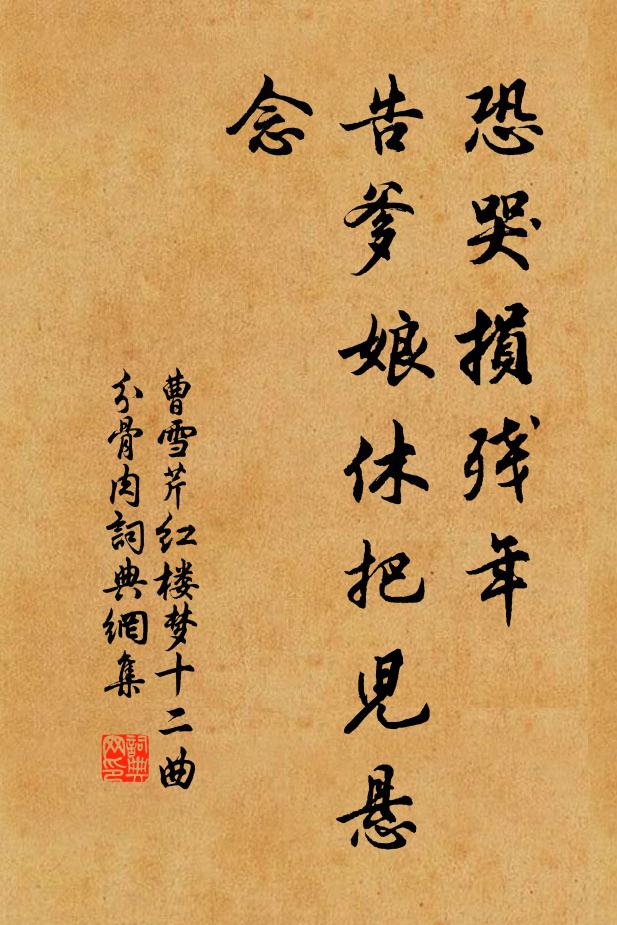 恐哭損残年
告爹娘休把児悬
念
曹雪芹红楼梦十二曲
分骨肉詞典網集
詞典网印